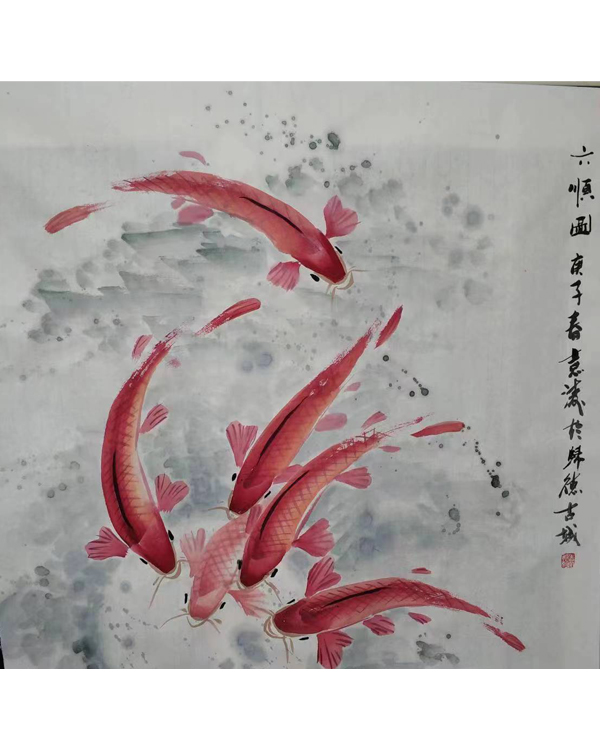 六順圖 庚子春於歸德古城